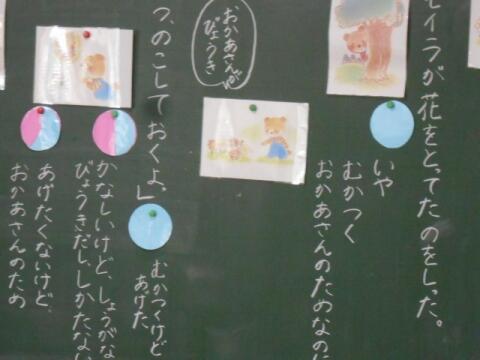 モイラが花をとってたのをしった。
いや
むかつく
おかあさんのためなの
おかあさんが
びょうき
つ、のこしておくよ。」
むかつけど
あげた
かなしいけど、しょうがな
びょうきだし、しかたない
あげたくないけど、
おかあさんのため